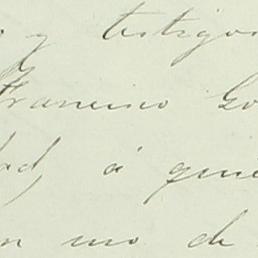 y testigos
Francisco Go
dad, á quie
en uno de